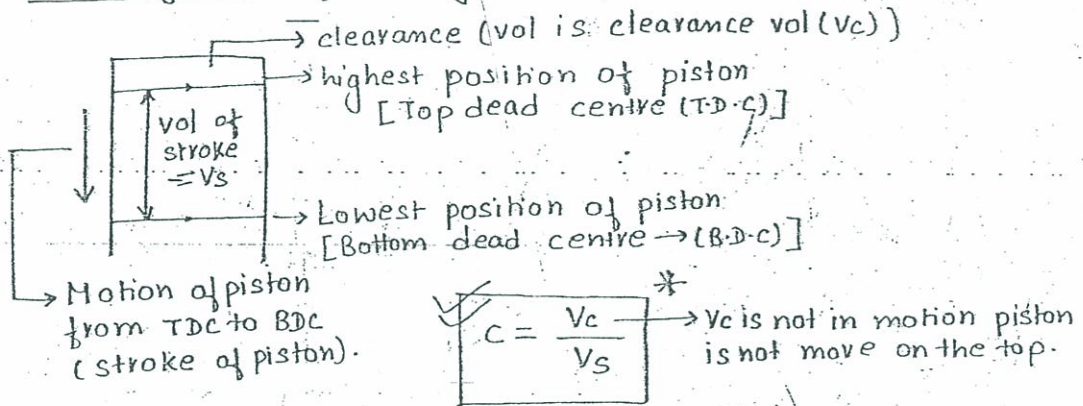 clearance (vol is clearance vol (Vc))
highest position of piston
[Top dead centre (T.D.C)]
vol of
stroke
= Vs
Lowest position of piston
[Bottom dead centre → (B.D.C)]
Motion of piston
from TDC to BDC
(stroke of piston).
C = Vc / Vs
*
Vc is not in motion piston
is not move on the top.